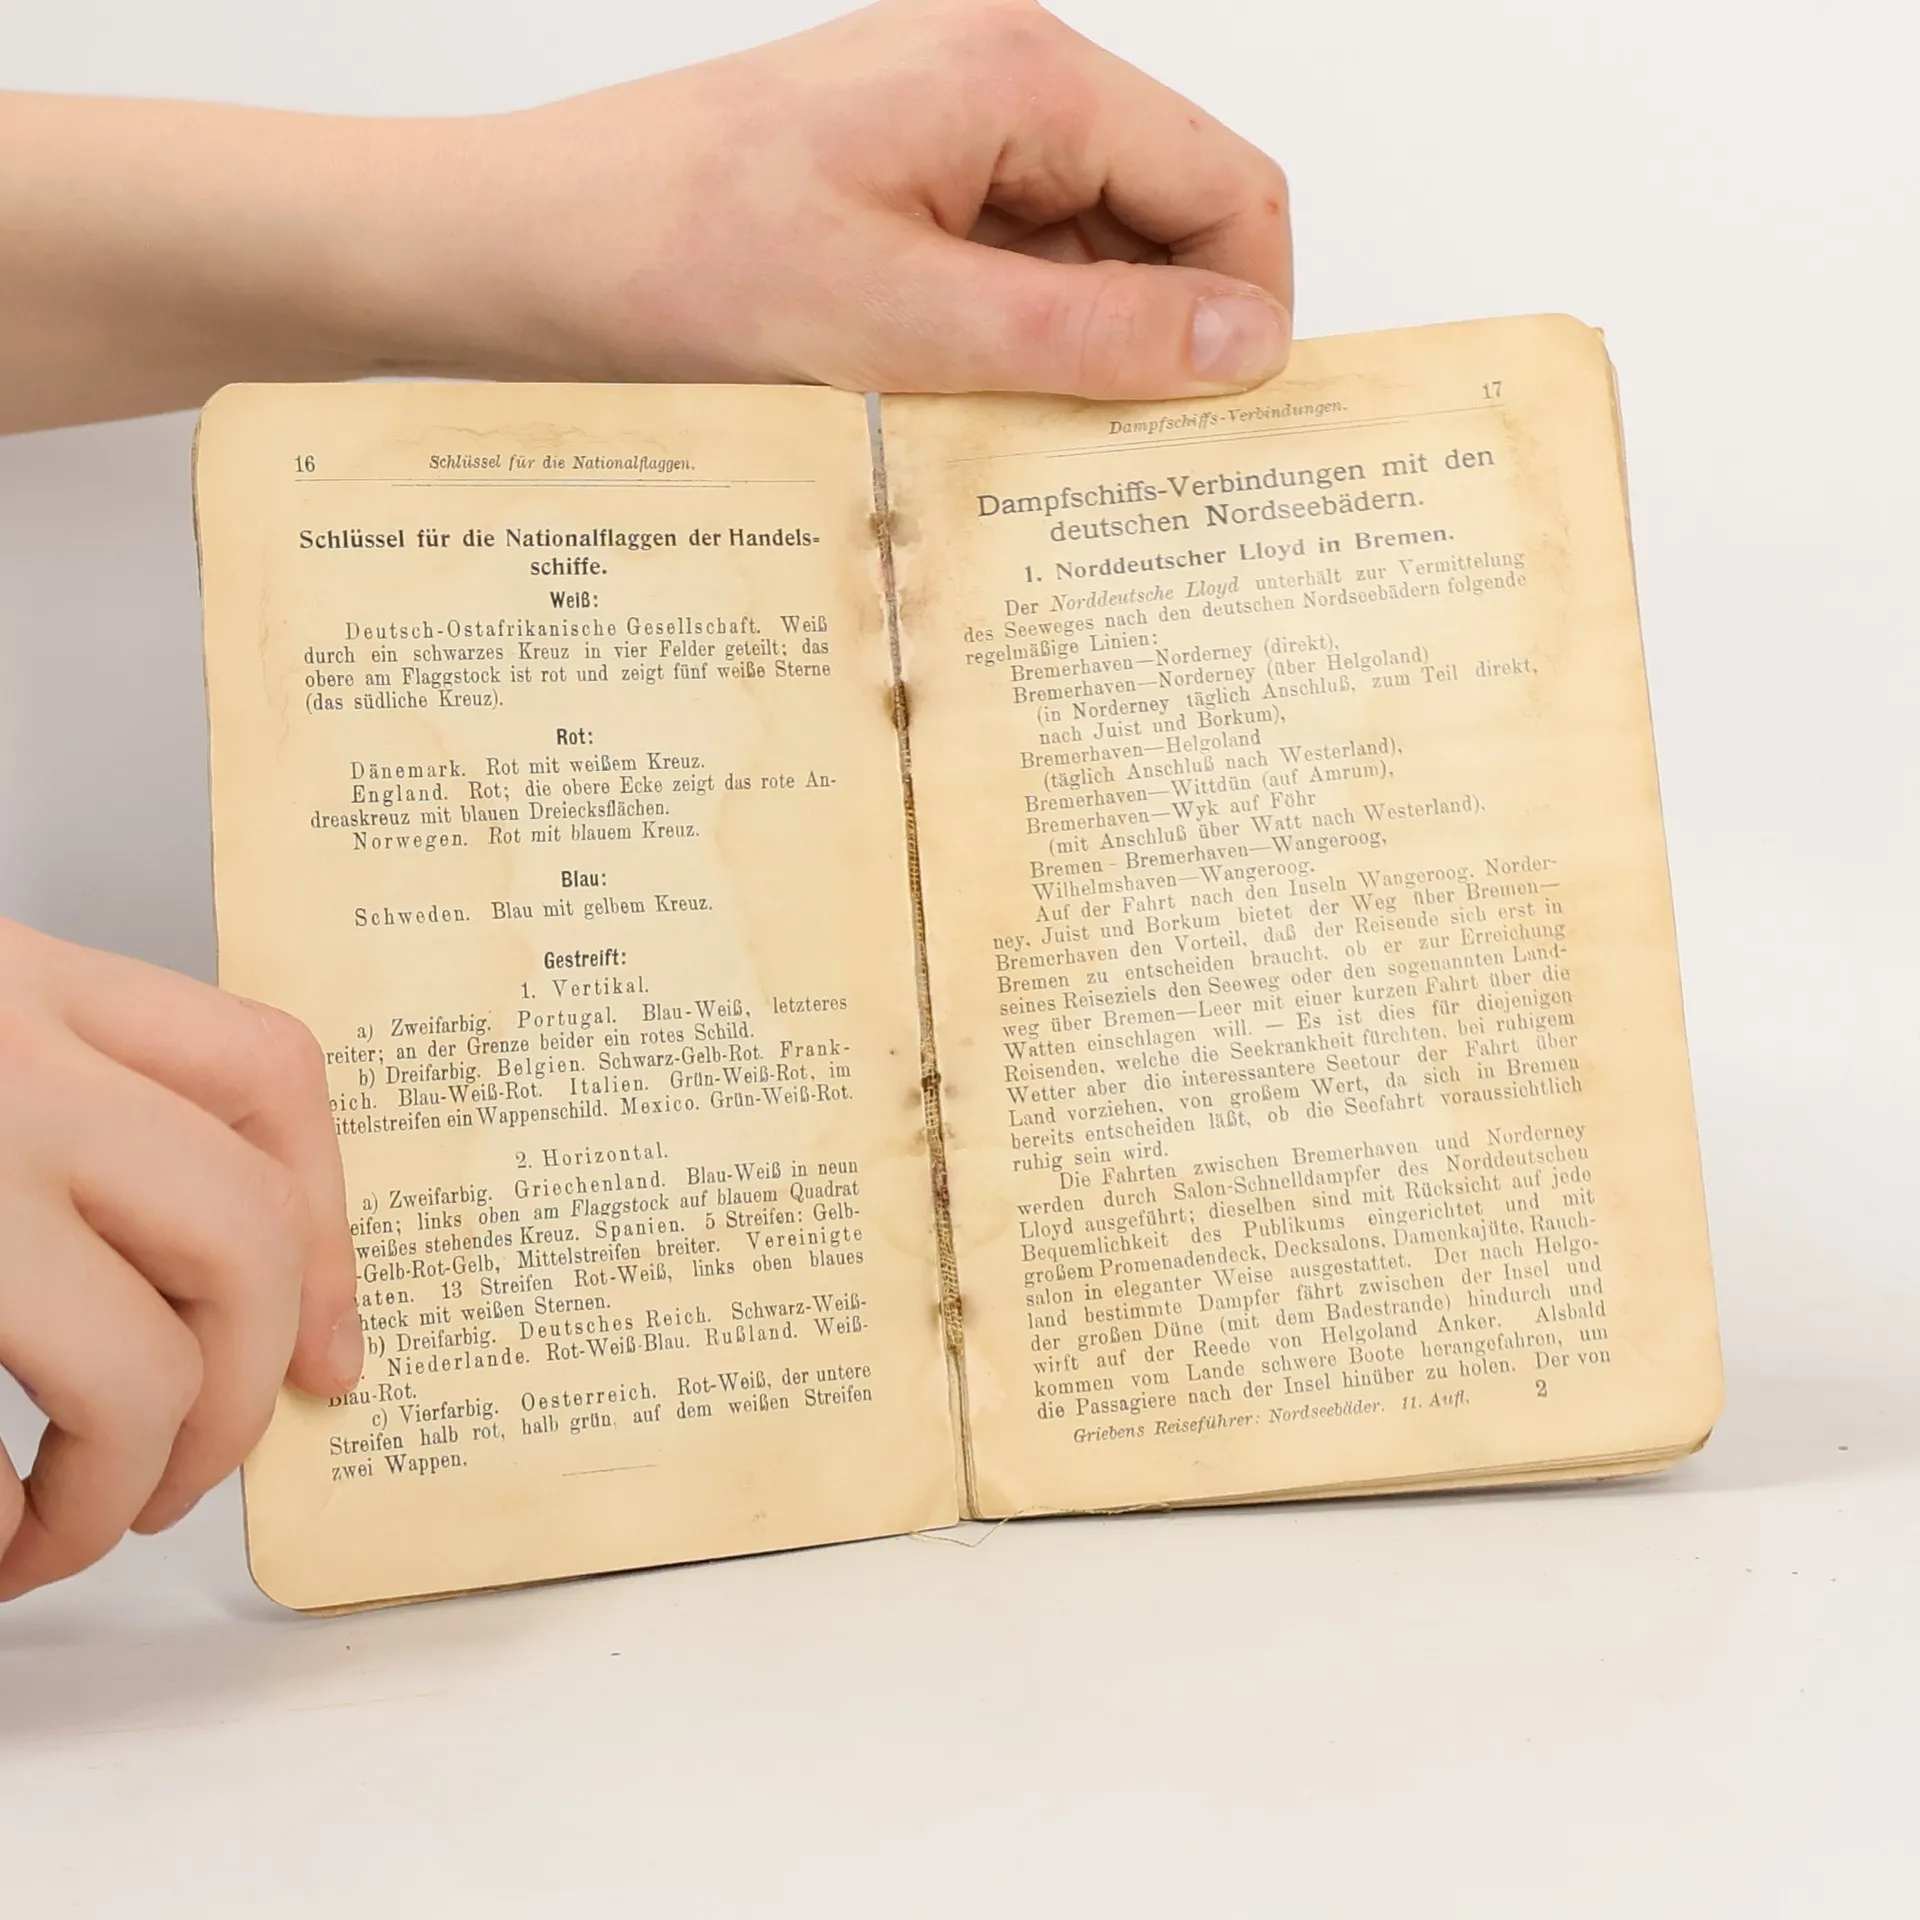 16
Schlüssel für die Nationalflaggen.
Schlüssel für die Nationalflaggen der Handels-
schiffe.
Weiß:
Deutsch-Ostafrikanische Gesellschaft. Weiß
durch ein schwarzes Kreuz in vier Felder geteilt; das
obere am Flaggstock ist rot und zeigt fünf weiße Sterne
(das südliche Kreuz).
Rot:
Dänemark. Rot mit weißem Kreuz.
England. Rot; die obere Ecke zeigt das rote An-
dreaskreuz mit blauen Dreiecksflächen.
Norwegen. Rot mit blauem Kreuz.
Blau:
Schweden. Blau mit gelbem Kreuz.
Gestreift:
1. Vertikal.
a) Zweifarbig. Portugal. Blau-Weiß, letzteres
reiter; an der Grenze beider ein rotes Schild.
b) Dreifarbig. Belgien. Schwarz-Gelb-Rot. Frank-
eich. Blau-Weiß-Rot. Italien. Grün-Weiß-Rot, im
ittelstreifen ein Wappenschild. Mexico. Grün-Weiß-Rot.
2. Horizontal.
a) Zweifarbig. Griechenland. Blau-Weiß in neun
eifen; links oben am Flaggstock auf blauem Quadrat
weißes stehendes Kreuz. Spanien. 5 Streifen: Gelb-
-Gelb-Rot-Gelb, Mittelstreifen breiter. Vereinigte
aten. 13 Streifen Rot-Weiß, links oben blaues
hteck mit weißen Sternen.
b) Dreifarbig. Deutsches Reich. Schwarz-Weiß-
. Niederlande. Rot-Weiß-Blau. Rußland. Weiß-
Blau-Rot.
c) Vierfarbig. Oesterreich. Rot-Weiß, der untere
Streifen halb rot, halb grün, auf dem weißen Streifen
zwei Wappen.
Dampfschiffs-Verbindungen.
17
Dampfschiffs-Verbindungen mit den
deutschen Nordseebädern.
1. Norddeutscher Lloyd in Bremen.
Der Norddeutsche Lloyd unterhält zur Vermittelung
des Seeweges nach den deutschen Nordseebädern folgende
regelmäßige Linien:
Bremerhaven—Norderney (direkt),
Bremerhaven—Norderney (über Helgoland)
(in Norderney täglich Anschluß, zum Teil direkt,
nach Juist und Borkum),
Bremerhaven—Helgoland
(täglich Anschluß nach Westerland),
Bremerhaven—Wittdün (auf Amrum),
Bremerhaven—Wyk auf Föhr
(mit Anschluß über Watt nach Westerland),
Bremen - Bremerhaven—Wangeroog,
Wilhelmshaven—Wangeroog.
Auf der Fahrt nach den Inseln Wangeroog, Norder-
ney, Juist und Borkum bietet der Weg über Bremen—
Bremerhaven den Vorteil, daß der Reisende sich erst in
Bremen zu entscheiden braucht, ob er zur Erreichung
seines Reiseziels den Seeweg oder den sogenannten Land-
weg über Bremen—Leer mit einer kurzen Fahrt über die
Watten einschlagen will. — Es ist dies für diejenigen
Reisenden, welche die Seekrankheit fürchten, bei ruhigem
Wetter aber die interessantere Seetour der Fahrt über
Land vorziehen, von großem Wert, da sich in Bremen
bereits entscheiden läßt, ob die Seefahrt voraussichtlich
ruhig sein wird.
Die Fahrten zwischen Bremerhaven und Norderney
werden durch Salon-Schnelldampfer des Norddeutschen
Lloyd ausgeführt; dieselben sind mit Rücksicht auf jede
Bequemlichkeit des Publikums eingerichtet und mit
großem Promenadendeck, Decksalons, Damenkajüte, Rauch-
salon in eleganter Weise ausgestattet. Der nach Helgo-
land bestimmte Dampfer fährt zwischen der Insel und
der großen Düne (mit dem Badestrande) hindurch und
wirft auf der Reede von Helgoland Anker. Alsbald
kommen vom Lande schwere Boote herangefahren, um
die Passagiere nach der Insel hinüber zu holen. Der von
Griebens Reiseführer: Nordseebäder. 11. Aufl.
2